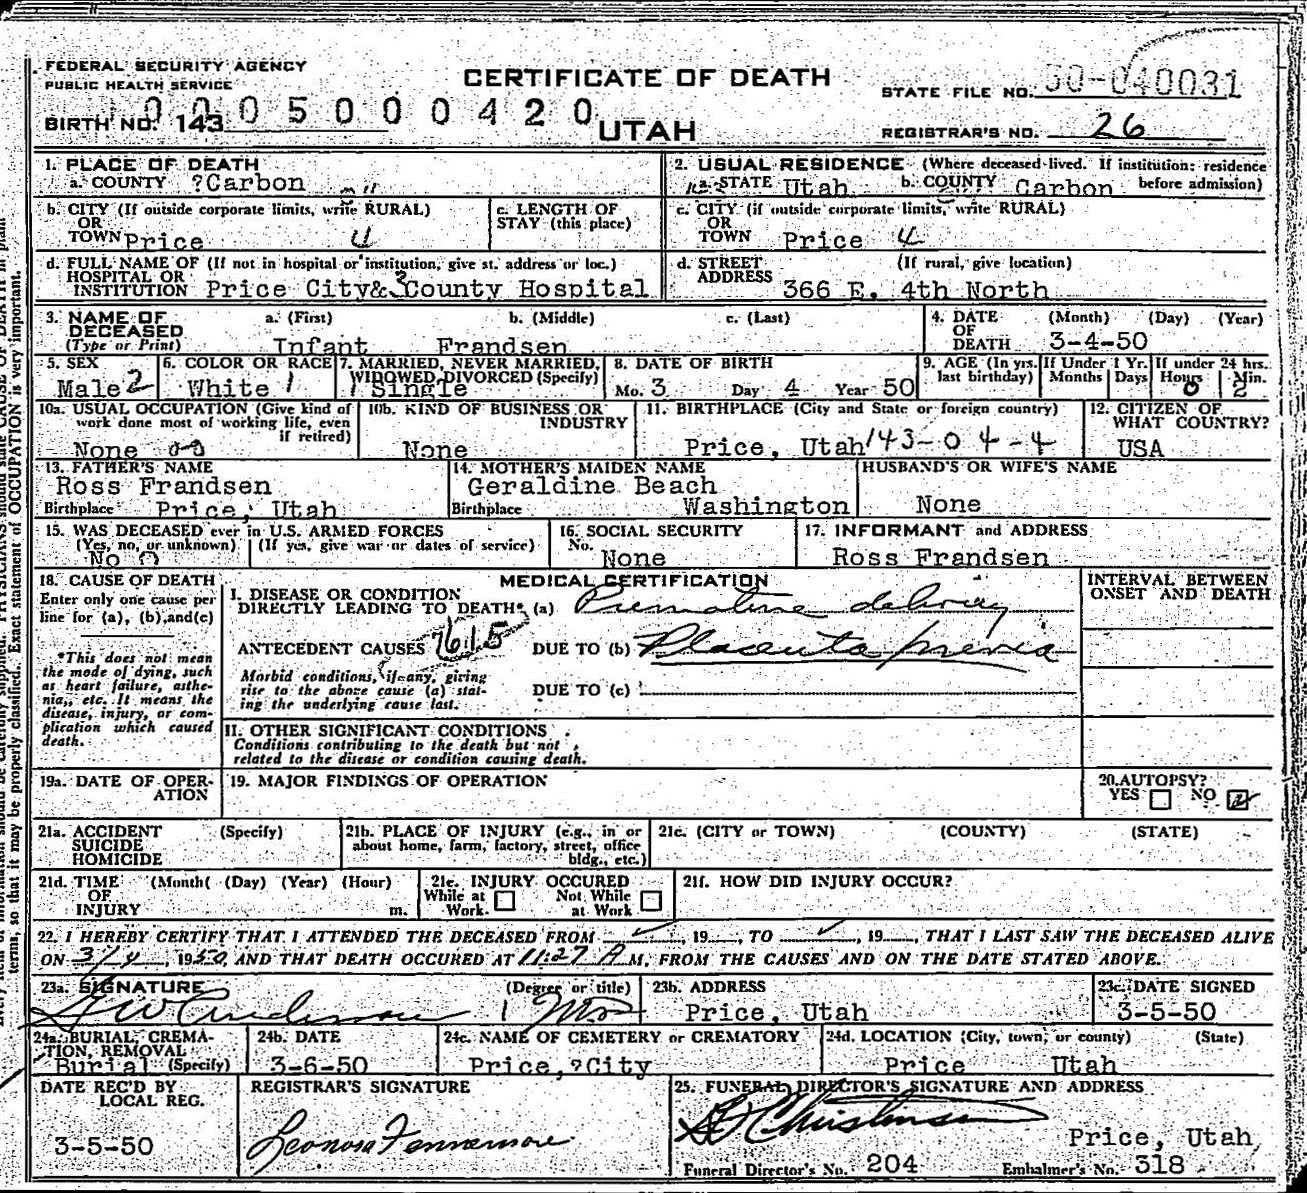 FEDERAL SECURITY AGENCY
PUBLIC HEALTH SERVICE
CERTIFICATE OF DEATH
STATE FILE NO. 50-040031
0005000420
BIRTH NO. 143
UTAH
REGISTRAR'S NO. 26
1. PLACE OF DEATH
a. COUNTY ?Carbon
2. USUAL RESIDENCE (Where deceased lived. If institution: residence before admission)
a. STATE Utah b. COUNTY Carbon
b. CITY (If outside corporate limits, write RURAL)
OR
TOWN Price 4
c. LENGTH OF
STAY (this place)
c. CITY (if outside corporate limits, write RURAL)
OR
TOWN Price 4
d. FULL NAME OF (If not in hospital or institution, give st. address or loc.)
HOSPITAL OR
INSTITUTION Price City& 3 County Hospital
d. STREET (If rural, give location)
ADDRESS 366 E. 4th North
3. NAME OF a. (First) b. (Middle) c. (Last)
DECEASED
(Type or Print) Infant Frandsen
4. DATE (Month) (Day) (Year)
OF
DEATH 3-4-50
5. SEX
Male 2
6. COLOR OR RACE
White 1
7. MARRIED, NEVER MARRIED,
WIDOWED, DIVORCED (Specify)
1 Single
8. DATE OF BIRTH
Mo. 3 Day 4 Year 50
9. AGE (In yrs. last birthday)
If Under 1 Yr. Months Days
If under 24 hrs. Hours Min.
0 2
10a. USUAL OCCUPATION (Give kind of
work done most of working life, even
if retired)
None
10b. KIND OF BUSINESS OR
INDUSTRY
None
11. BIRTHPLACE (City and State or foreign country)
Price, Utah 143-04-4
12. CITIZEN OF
WHAT COUNTRY?
USA
13. FATHER'S NAME
Ross Frandsen
Birthplace Price, Utah
14. MOTHER'S MAIDEN NAME
Geraldine Beach
Birthplace Washington
HUSBAND'S OR WIFE'S NAME
None
15. WAS DECEASED ever in U.S. ARMED FORCES
(Yes, no, or unknown) (If yes, give war or dates of service)
No 0
16. SOCIAL SECURITY
No. None
17. INFORMANT and ADDRESS
Ross Frandsen
18. CAUSE OF DEATH
Enter only one cause per
line for (a), (b), and (c)
*This does not mean
the mode of dying, such
as heart failure, asthe-
nia, etc. It means the
disease, injury, or com-
plication which caused
death.
MEDICAL CERTIFICATION
I. DISEASE OR CONDITION
DIRECTLY LEADING TO DEATH* (a) Premature delivery
ANTECEDENT CAUSES 761.5 DUE TO (b) Placenta previa
Morbid conditions, if any, giving
rise to the above cause (a) stat-
ing the underlying cause last.
DUE TO (c)
II. OTHER SIGNIFICANT CONDITIONS
Conditions contributing to the death but not
related to the disease or condition causing death.
INTERVAL BETWEEN
ONSET AND DEATH
19a. DATE OF OPER-
ATION
19. MAJOR FINDINGS OF OPERATION
20. AUTOPSY?
YES NO 2
21a. ACCIDENT (Specify)
SUICIDE
HOMICIDE
21b. PLACE OF INJURY (e.g., in or
about home, farm, factory, street, office
bldg., etc.)
21c. (CITY or TOWN) (COUNTY) (STATE)
21d. TIME (Month( (Day) (Year) (Hour)
OF
INJURY m.
21e. INJURY OCCURED
While at Work. Not While at Work
21f. HOW DID INJURY OCCUR?
22. I HEREBY CERTIFY THAT I ATTENDED THE DECEASED FROM ✓, 19__, TO ✓, 19__, THAT I LAST SAW THE DECEASED ALIVE
ON 3/4, 1950, AND THAT DEATH OCCURED AT 11:27 A M. FROM THE CAUSES AND ON THE DATE STATED ABOVE.
23a. SIGNATURE (Degree or title)
23b. ADDRESS
Price, Utah
23c. DATE SIGNED
3-5-50
24a. BURIAL, CREMA-
TION, REMOVAL
Burial (Specify)
24b. DATE
3-6-50
24c. NAME OF CEMETERY or CREMATORY
Price, ?City
24d. LOCATION (City, town, or county) (State)
Price Utah
DATE REC'D BY
LOCAL REG.
3-5-50
REGISTRAR'S SIGNATURE
Leonora Fennemore
25. FUNERAL DIRECTOR'S SIGNATURE AND ADDRESS
Price, Utah
Funeral Director's No. 204 Embalmer's No. 318